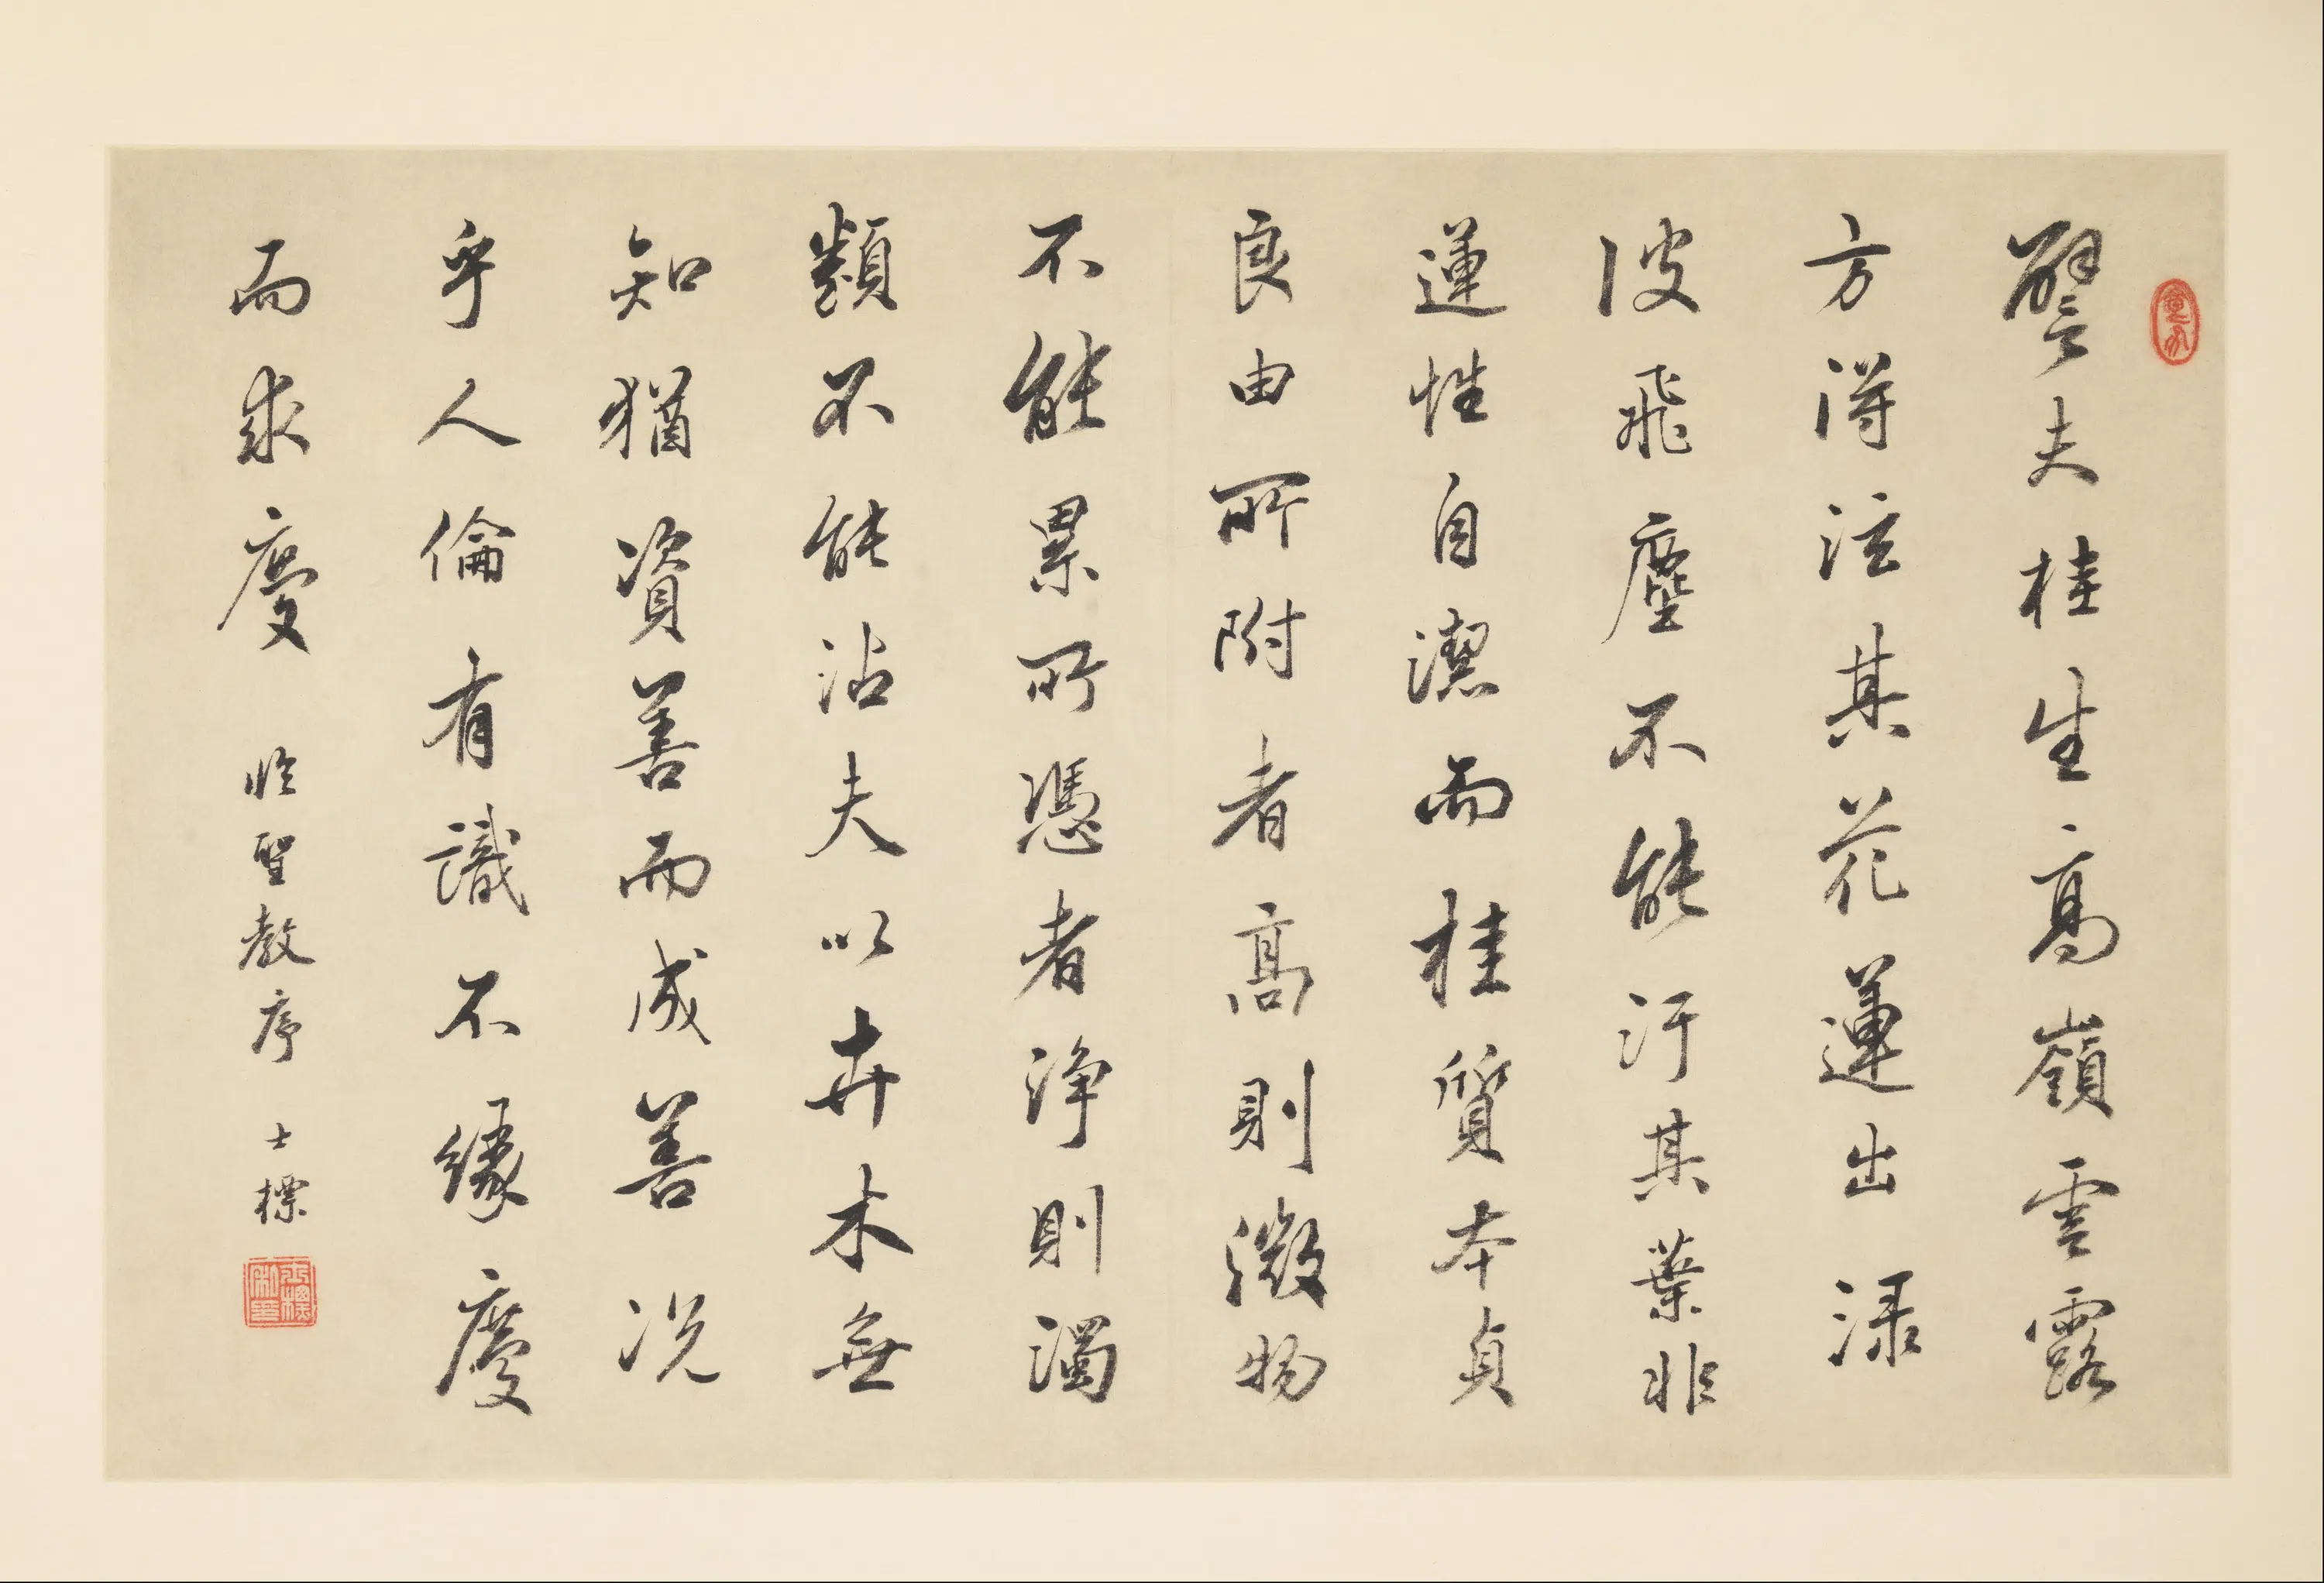 譬夫桂生高嶺雲露
方得泫其花蓮出渌
波飛塵不能汙其葉非
蓮性自潔而桂質本貞
良由所附者高則微物
不能累所憑者淨則濁
類不能沾夫以卉木無
知猶資善而成善況
乎人倫有識不緣慶
而求慶 臨聖教序 士標